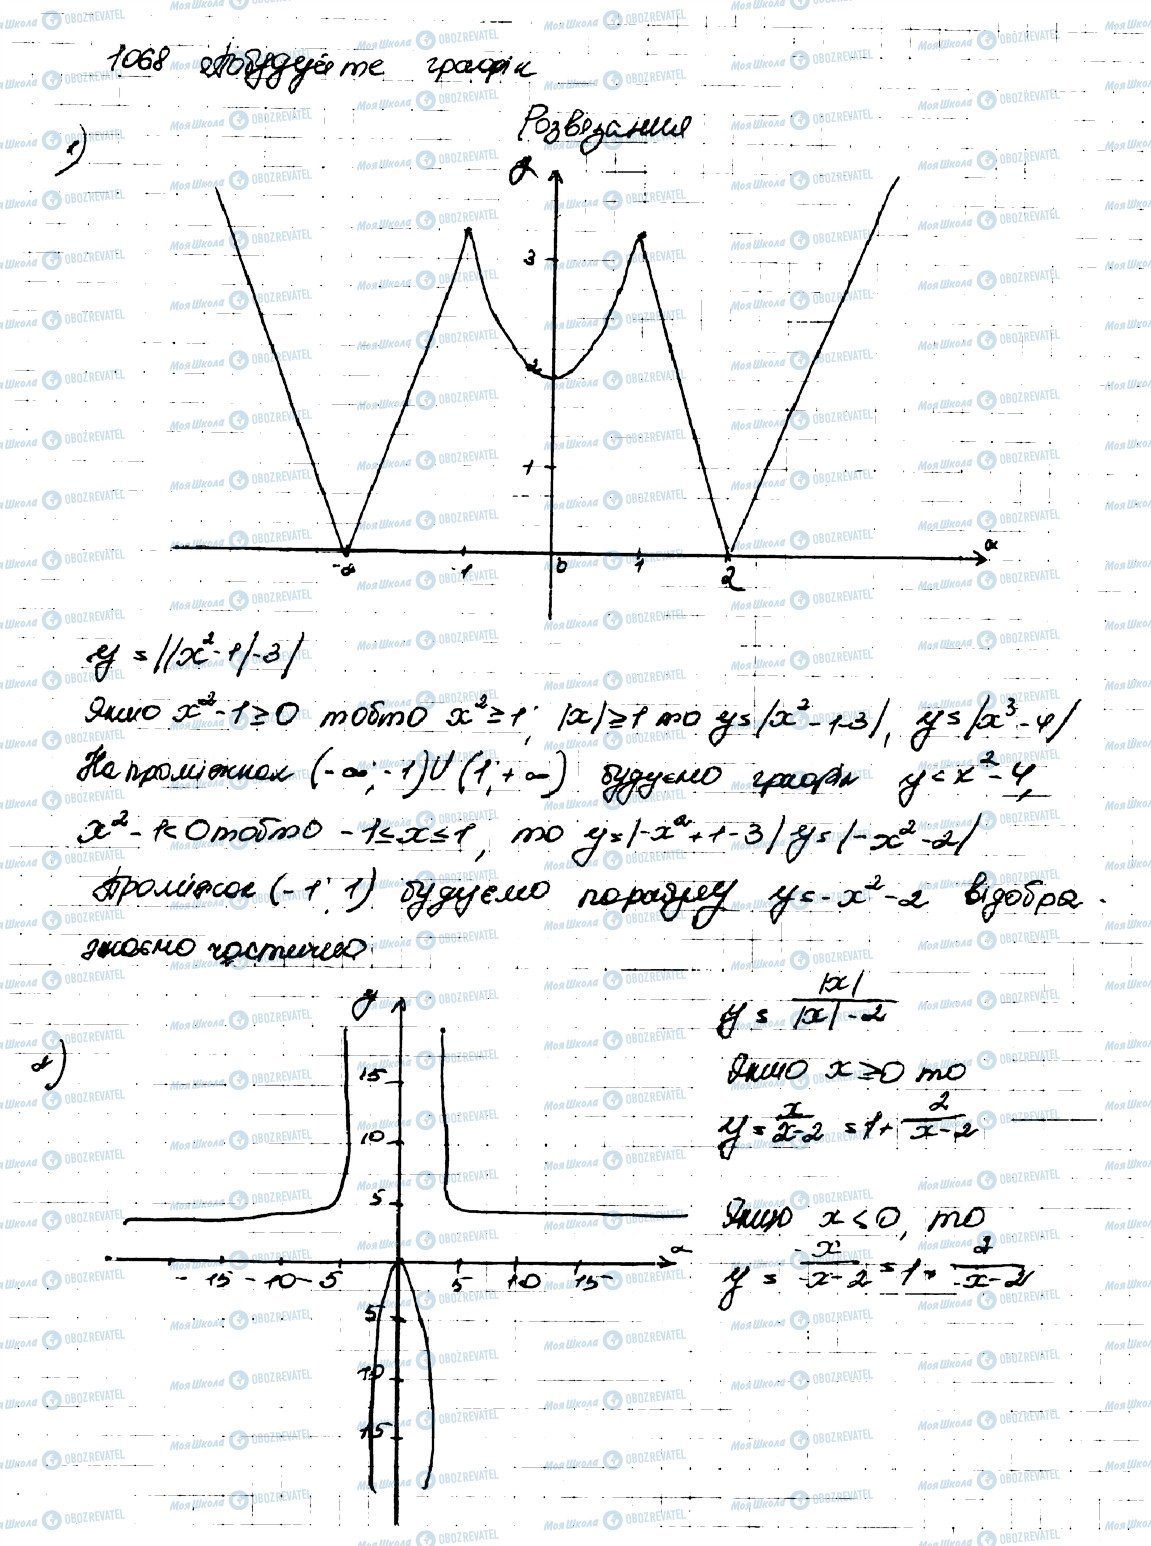 1068 Побудуйте графік
Розвязання
1)
y
3
2
1
-2 -1 0 1 2 x
y = ||x²-1|-3|
Якщо x²-1≥0 тобто x²≥1; |x|≥1 то y=|x²-1-3|, y=|x³-4|
На проміжках (-∞;-1)∪(1;+∞) будуємо графік y=x²-4,
x²-1<0 тобто -1≤x≤1, то y=|-x²+1-3| y=|-x²-2|
Проміжок (-1;1) будуємо параболу y=-x²-2 відобра-
жаємо частично.
2)
y
15
10
5
-15 -10 -5 5 10 15 x
5
10
15
y = |x| / |x|-2
Якщо x≥0 то
y = x / x-2 = 1+ 2 / x-2
Якщо x<0, то
y = -x / -x-2 = 1+ 2 / -x-2
Моя Школа OBOZREVATEL